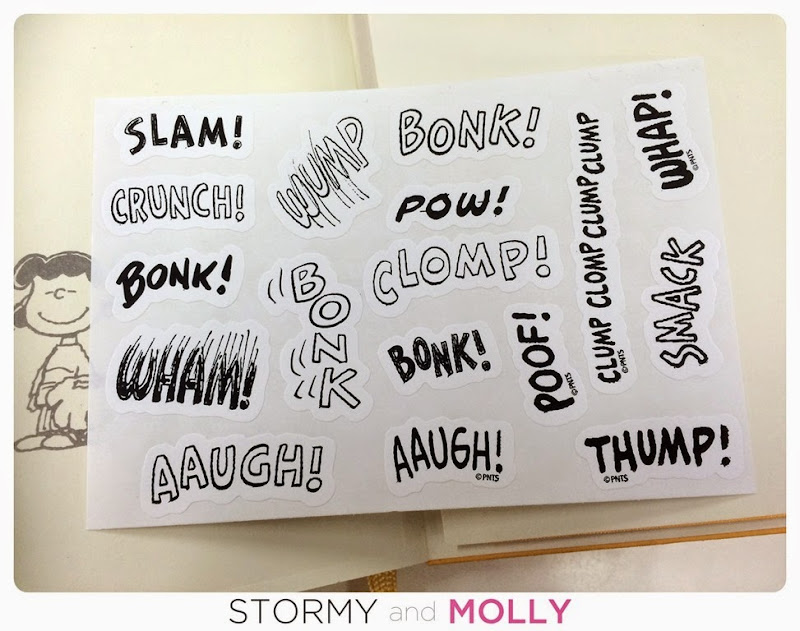 SLAM!
WUMP
BONK!
WHAP!
©PNTS
CRUNCH!
POW!
CLUMP CLOMP CLUMP CLUMP
©PNTS
BONK!
BONK
CLOMP!
SMACK
WHAM!
BONK!
POOF!
©PNTS
AAUGH!
AAUGH!
©PNTS
THUMP!
©PNTS
STORMY and MOLLY